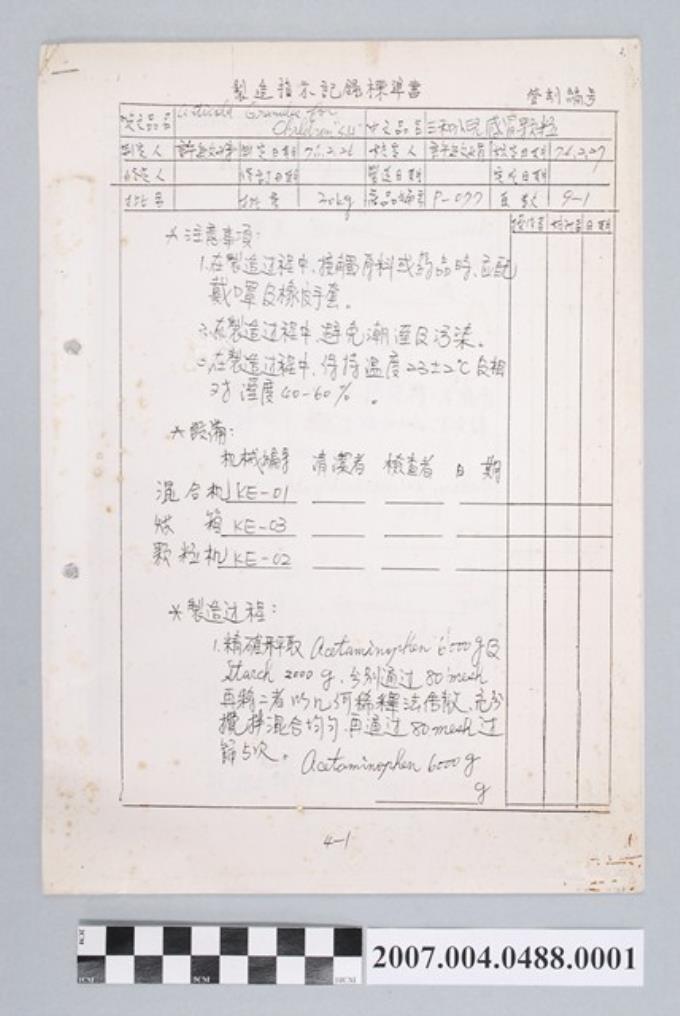 製造指示記錄標準書
管制編号
Granules for
Children "S.S"
三和小兒感冒顆粒
制定人 制定日期 76.2.26 核定人 核定日期 76.2.27
修定人 修訂日期 製造日期 完成日期
批号 批量 20kg 產品編号 P-077 頁数 9-1
操作者 核对者 日期
*注意事項:
1.在製造过程中,接觸原料或藥品時,应配
戴口罩及橡皮手套。
二.在製造过程中,避免潮溼及污染。
三.在製造过程中,保持温度23±2℃及相
对溼度40-60%。
*設備:
机械編号 清潔者 檢查者 日期
混合机 KE-01
烘箱 KE-03
顆粒机 KE-02
*製造过程:
1.精確秤取Acetaminophen 6000g及
Starch 2000g,分別通过80mesh
再将二者以几何稀釋法倍散,充分
攪拌混合均勻,再通过80mesh过
篩5次。
Acetaminophen 6000g
g
4-1
2007.004.0488.0001
0CM
5CM
10CM